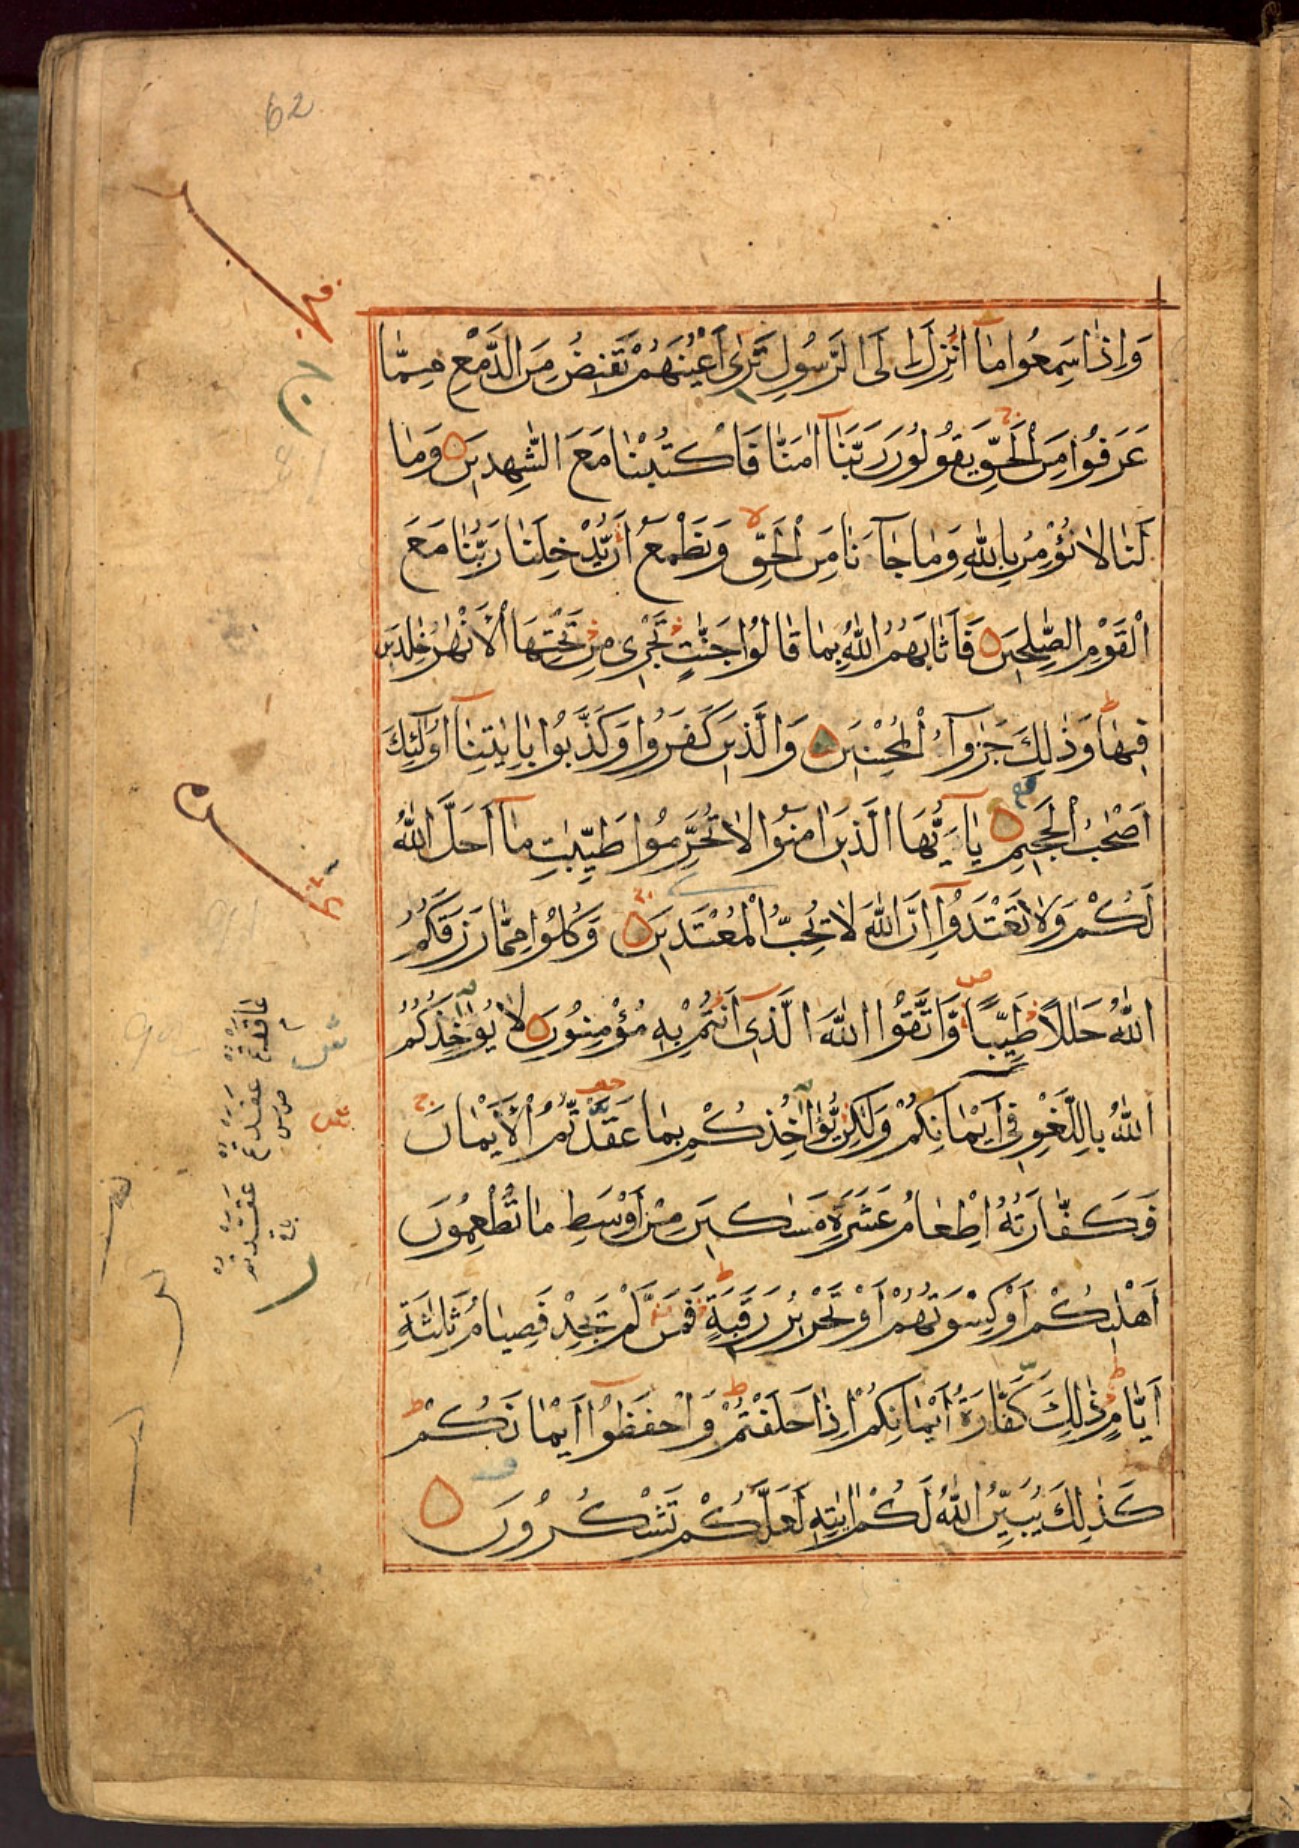 62
وَاِذَا سَمِعُوا مَآ اُنْزِلَ اِلَى الرَّسُولِ تَرٰى اَعْيُنَهُمْ تَفِيضُ مِنَ الدَّمْعِ مِمَّا
عَرَفُوا مِنَ الْحَقِّ يَقُولُونَ رَبَّنَآ اٰمَنَّا فَاكْتُبْنَا مَعَ الشّٰهِدِينَ وَمَا
لَنَا لَا نُؤْمِنُ بِاللّٰهِ وَمَا جَآءَنَا مِنَ الْحَقِّ وَنَطْمَعُ اَنْ يُدْخِلَنَا رَبُّنَا مَعَ
الْقَوْمِ الصّٰلِحِينَ فَاَثَابَهُمُ اللّٰهُ بِمَا قَالُوا جَنّٰتٍ تَجْرِى مِنْ تَحْتِهَا الْاَنْهٰرُ خٰلِدِينَ
فِيهَا وَذٰلِكَ جَزَآؤُا الْمُحْسِنِينَ وَالَّذِينَ كَفَرُوا وَكَذَّبُوا بِاٰيٰتِنَآ اُولٰٓئِكَ
اَصْحٰبُ الْجَحِيمِ يَآ اَيُّهَا الَّذِينَ اٰمَنُوا لَا تُحَرِّمُوا طَيِّبٰتِ مَآ اَحَلَّ اللّٰهُ
لَكُمْ وَلَا تَعْتَدُوٓا اِنَّ اللّٰهَ لَا يُحِبُّ الْمُعْتَدِينَ وَكُلُوا مِمَّا رَزَقَكُمُ
اللّٰهُ حَلٰلًا طَيِّبًا وَاتَّقُوا اللّٰهَ الَّذِىٓ اَنْتُمْ بِهِ مُؤْمِنُونَ لَا يُؤَاخِذُكُمُ
اللّٰهُ بِاللَّغْوِ فِىٓ اَيْمَانِكُمْ وَلٰكِنْ يُؤَاخِذُكُمْ بِمَا عَقَّدْتُمُ الْاَيْمَانَ
فَكَفَّارَتُهُ اِطْعَامُ عَشَرَةِ مَسٰكِينَ مِنْ اَوْسَطِ مَا تُطْعِمُونَ
اَهْلِيكُمْ اَوْ كِسْوَتُهُمْ اَوْ تَحْرِيرُ رَقَبَةٍ فَمَنْ لَمْ يَجِدْ فَصِيَامُ ثَلٰثَةِ
اَيَّامٍ ذٰلِكَ كَفَّارَةُ اَيْمَانِكُمْ اِذَا حَلَفْتُمْ وَاحْفَظُوٓا اَيْمَانَكُمْ
كَذٰلِكَ يُبَيِّنُ اللّٰهُ لَكُمْ اٰيٰتِهِ لَعَلَّكُمْ تَشْكُرُونَ